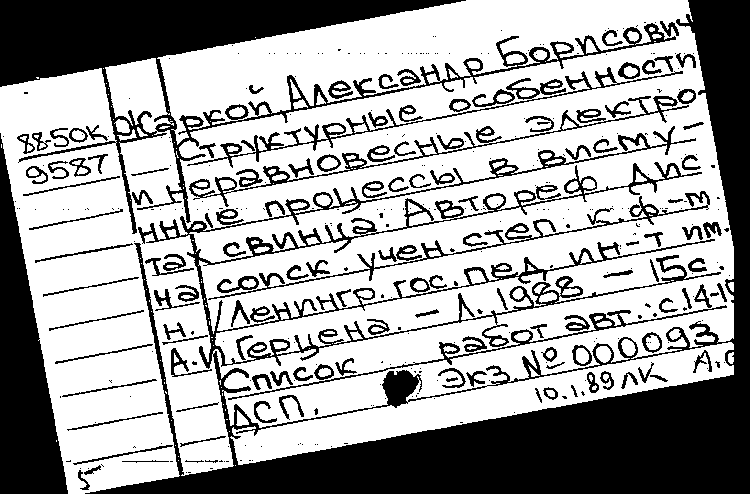 88-50К Жаркой, Александр Борисович
9587 Структурные особенности
и неравновесные электро-
нные процессы в висму-
тах свинца: Автореф. Дис.
на соиск. учен. степ. к.ф.-м.
н. /Ленингр. гос. пед. ин-т им.
А.И. Герцена. – Л., 1988. – 15с.
Список работ авт.: с.14-15
ДСП. Экз. № 000093
10.1.89 ЛК А.С
5